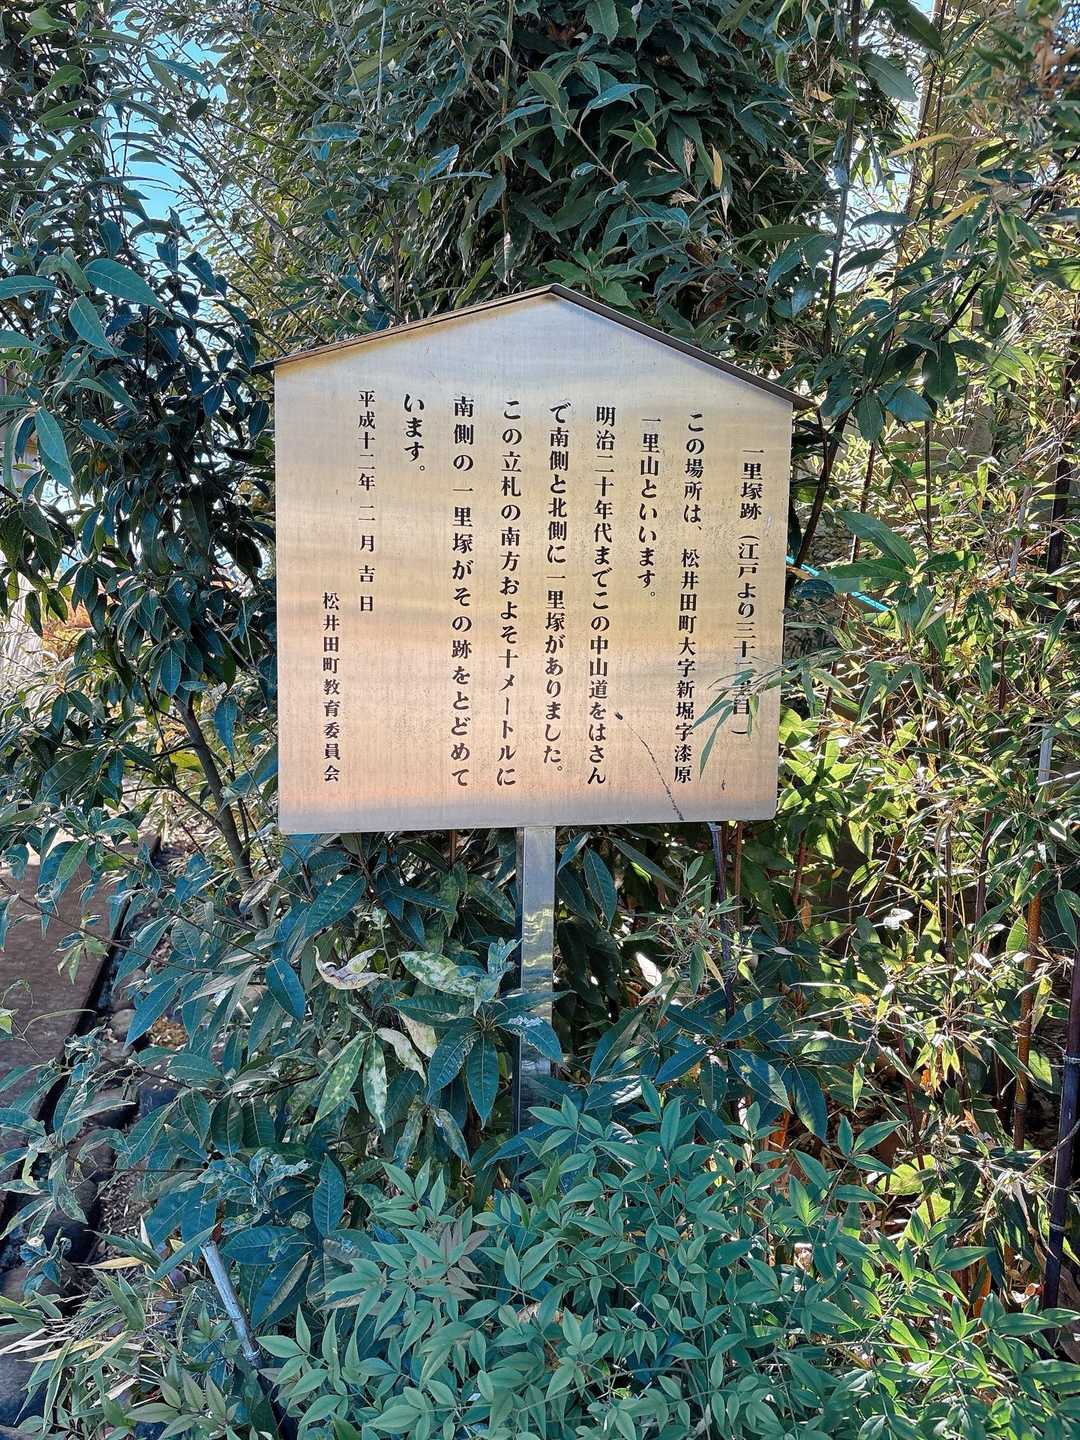 一里塚跡(江戸より三十里目)
この場所は、松井田町大字新堀字漆原
一里山といいます。
明治二十年代までこの中山道をはさん
で南側と北側に一里塚がありました。
この立札の南方およそ十メートルに
南側の一里塚がその跡をとどめて
います。
平成十二年 二月 吉日
松井田町教育委員会